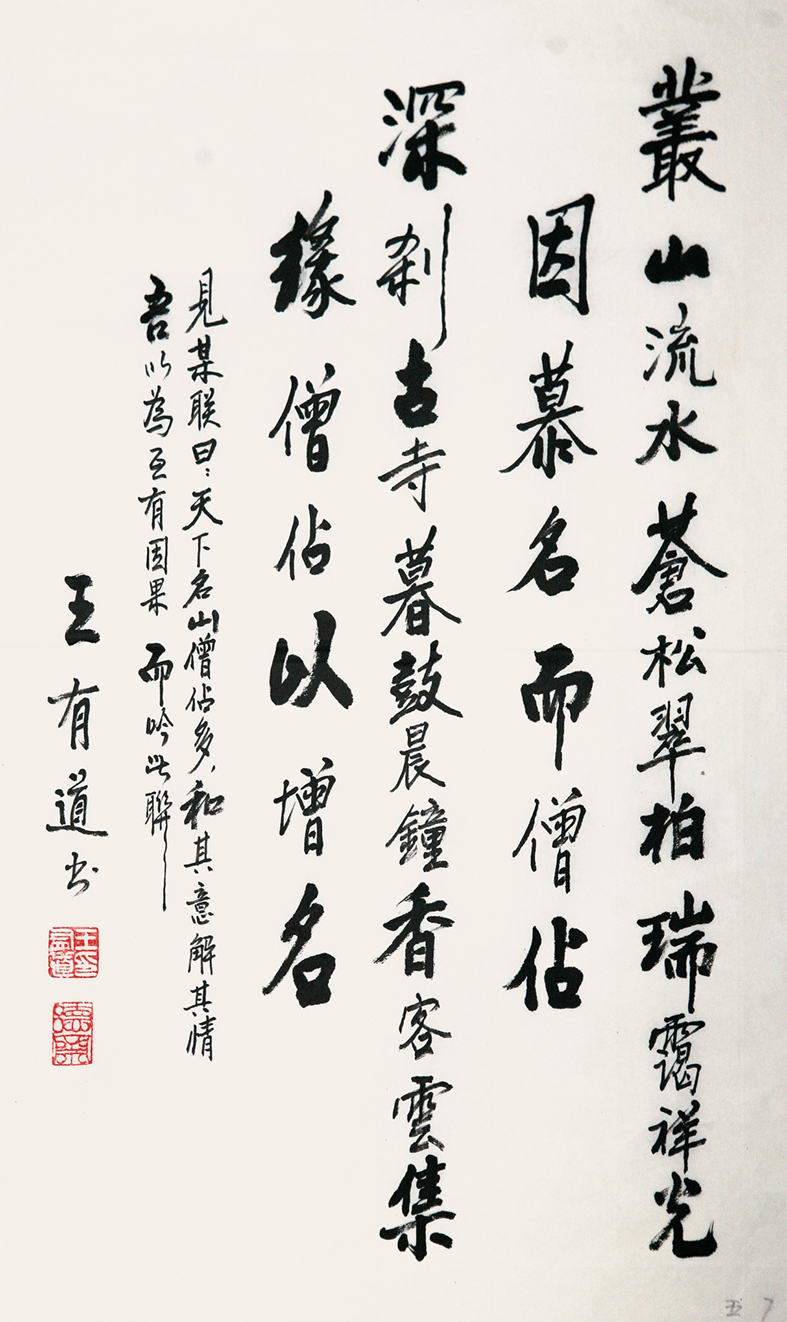 叢山流水蒼松翠柏瑞靄祥光
因慕名而僧佔
深刹古寺暮鼓晨鐘香客雲集
緣僧佔以增名
見某联曰：天下名山僧佔多，和其意解其情
吾以為互有因果而吟此聯
王有道书